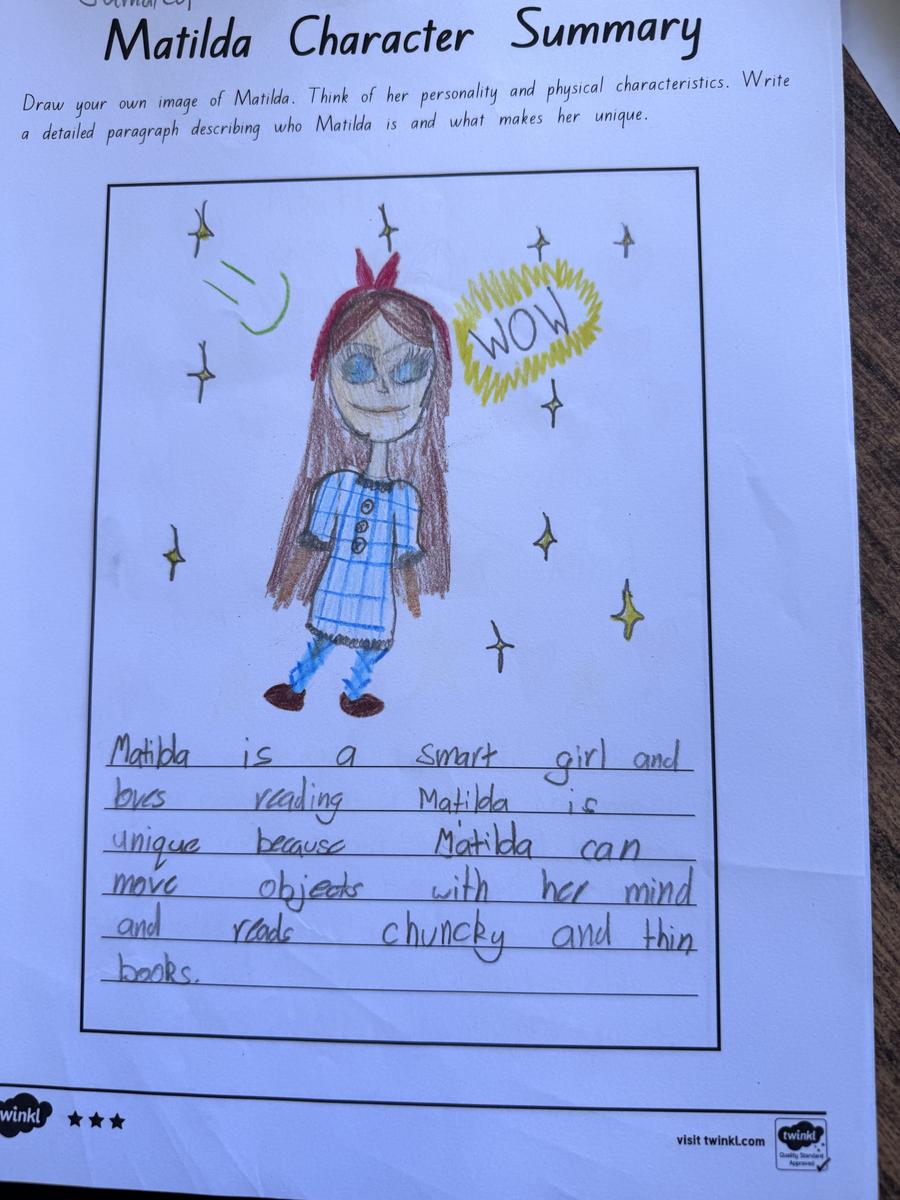 Matilda Character Summary
Draw your own image of Matilda. Think of her personality and physical characteristics. Write
a detailed paragraph describing who Matilda is and what makes her unique.
WOW
Matilda is a smart girl and
loves reading Matilda is
unique because Matilda can
move objects with her mind
and reads chuncky and thin
books.
twinkl
visit twinkl.com
twinkl
Quality Standard
Approved